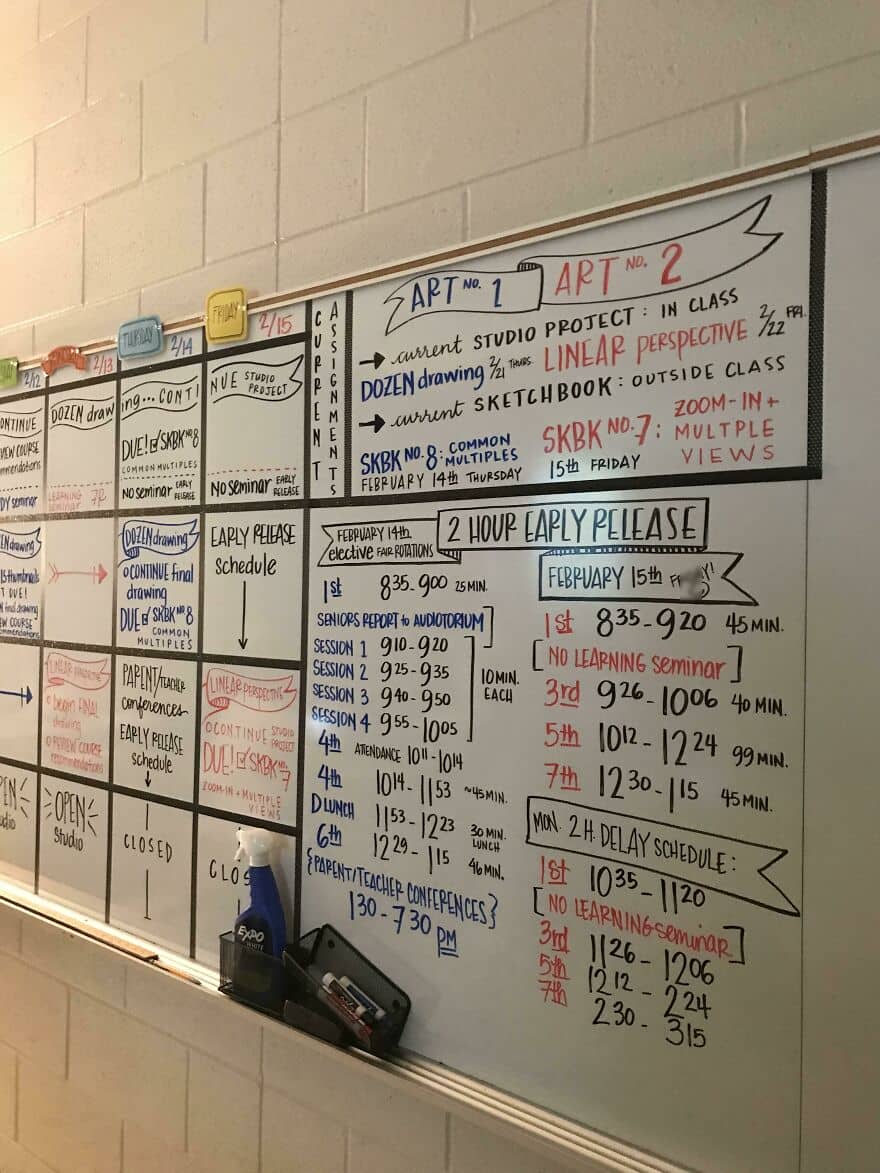 2/12
2/13
THURSDAY
2/14
FRIDAY
2/15
CURRENT
ASSIGNMENTS
DOZEN drawing... CONTINUE STUDIO PROJECT
LEARNING seminar 7R
DUE! SKBK NO. 8
COMMON MULTIPLES
NO seminar EARLY RELEASE
NO seminar EARLY RELEASE
DOZEN drawing
CONTINUE final
drawing
DUE SKBK NO. 8
COMMON
MULTIPLES
EARLY RELEASE
schedule
LINEAR PERSPECTIVE
begin FINAL
drawing
REVIEW COURSE
recommendations
PARENT/TEACHER
conferences
EARLY RELEASE
schedule
LINEAR PERSPECTIVE
CONTINUE STUDIO
PROJECT
DUE! SKBK NO. 7
ZOOM-IN + MULTIPLE
VIEWS
OPEN
Studio
CLOSED
CLOS
EXPO
WHITE
ART NO. 1
ART NO. 2
current STUDIO PROJECT: IN CLASS
DOZEN drawing 2/21 THURS. LINEAR PERSPECTIVE 2/22 FRI.
current SKETCHBOOK: OUTSIDE CLASS
SKBK NO. 8: COMMON
MULTIPLES
FEBRUARY 14th THURSDAY
SKBK NO. 7: ZOOM-IN +
MULTPLE
VIEWS
15th FRIDAY
2 HOUR EARLY RELEASE
FEBRUARY 14th
elective FAIR ROTATIONS
1st 835-900 25 MIN.
SENIORS REPORT to AUDIOTORIUM
SESSION 1 910-920
SESSION 2 925-935
SESSION 3 940-950
SESSION 4 955-1005
10 MIN.
EACH
4th ATTENDANCE 1011-1014
4th 1014-1153 ~45 MIN.
D LUNCH 1153-1223 30 MIN. LUNCH
6th 1229-115 46 MIN.
{PARENT/TEACHER CONFERENCES}
130-730 PM
FEBRUARY 15th
1st 835-920 45 MIN.
[NO LEARNING seminar]
3rd 926-1006 40 MIN.
5th 1012-1224 99 MIN.
7th 1230-115 45 MIN.
MON. 2 H. DELAY SCHEDULE:
1st 1035-1120
[NO LEARNING seminar]
3rd 1126-1206
5th 1212-224
7th 230-315